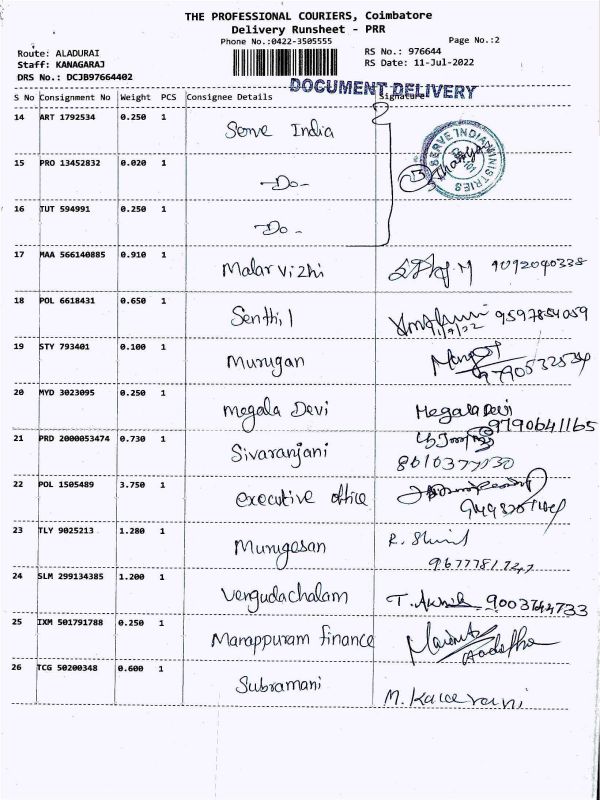 THE PROFESSIONAL COURIERS, Coimbatore
Delivery Runsheet - PRR
Phone No.:0422-3505555
Page No.:2
Route: ALADURAI
RS No.: 976644
Staff: KANAGARAJ
RS Date: 11-Jul-2022
DRS No.: DCJB97664402
DOCUMENT DELIVERY
S No Consignment No Weight PCS Consignee Details Signature
14 ART 1792534 0.250 1 Serve India
SERVE INDIA MINISTRIES
15 PRO 13452832 0.020 1 -Do-
16 TUT 594991 0.250 1 Do-
17 MAA 566140885 0.910 1 Malar vizhi 9092040338
18 POL 6618431 0.650 1 Senthil
19 STY 793401 0.100 1 Murugan
20 MYD 3023095 0.250 1 megala Devi Megala Devi
9790641165
21 PRD 2000053474 0.730 1 Sivaranjani
22 POL 1505489 3.750 1 executive office
23 TLY 9025213 1.280 1 Murugesan
24 SLM 299134385 1.200 1 Vengudachalam 9003744733
25 IXM 501791788 0.250 1 Manappuram finance
26 TCG 50200348 0.600 1 Subramani